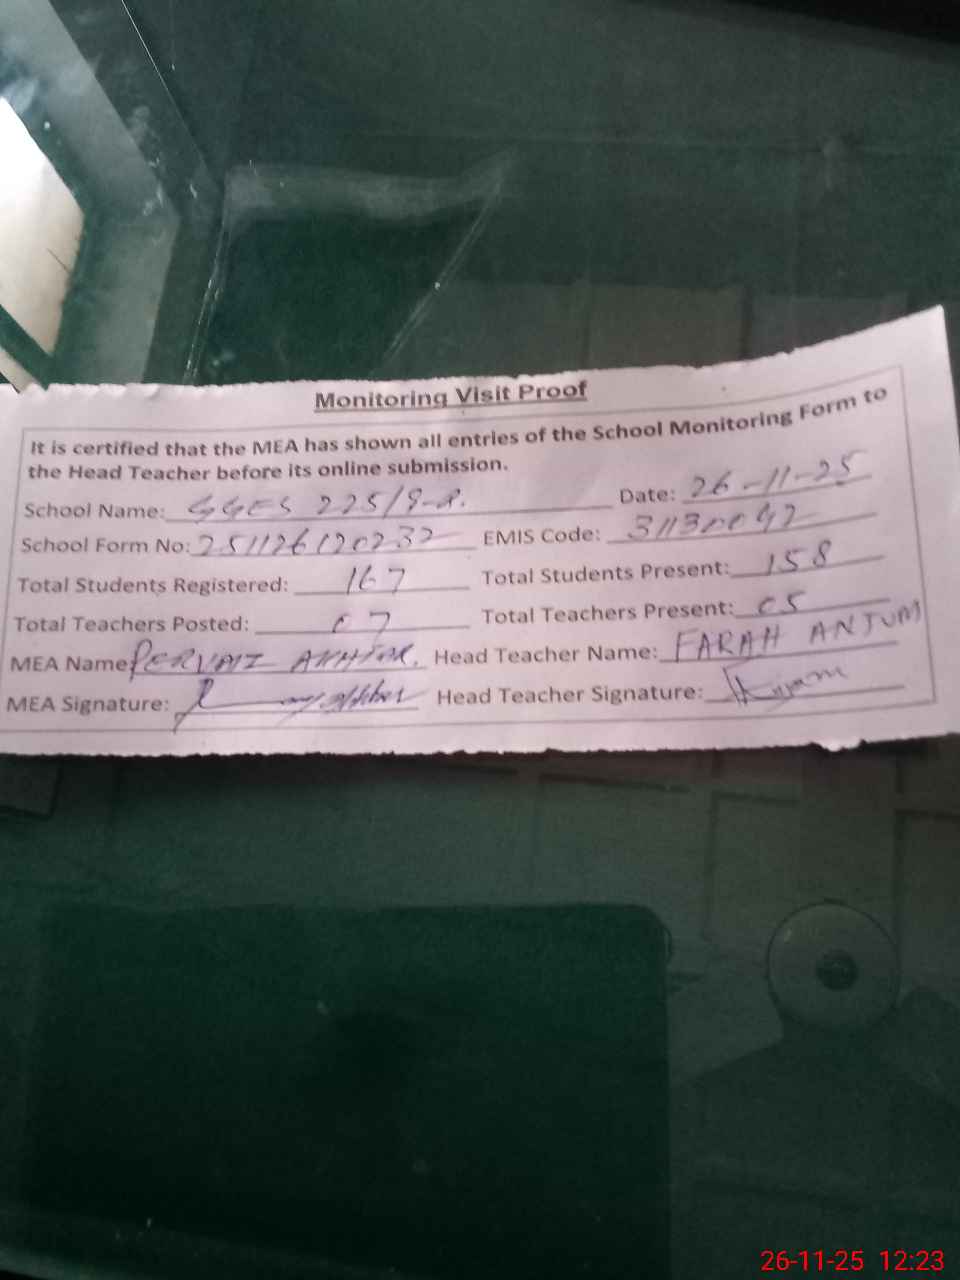 Monitoring Visit Proof
It is certified that the MEA has shown all entries of the School Monitoring Form to
the Head Teacher before its online submission.
School Name: GGES 225/9-R. Date: 26-11-25
School Form No: 251126120232 EMIS Code: 31130042
Total Students Registered: 167 Total Students Present: 158
Total Teachers Posted: 07 Total Teachers Present: 05
MEA Name PERVAIZ AKHTAR. Head Teacher Name: FARAH ANJUM
MEA Signature: Head Teacher Signature:
26-11-25 12:23